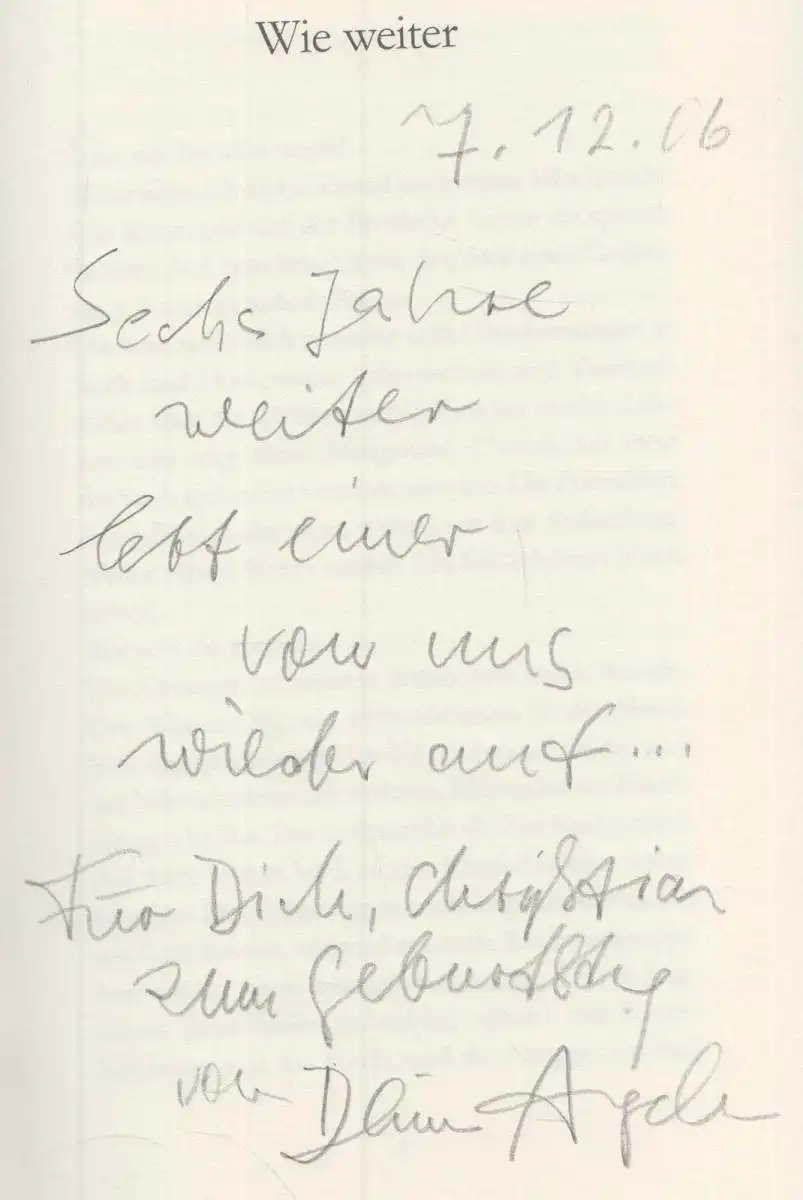 Wie weiter
7.12.06
Sechs Jahre
weiter
lebt einer
von uns
wieder auf...
Für Dich, Christian
zum Geburtstag
von